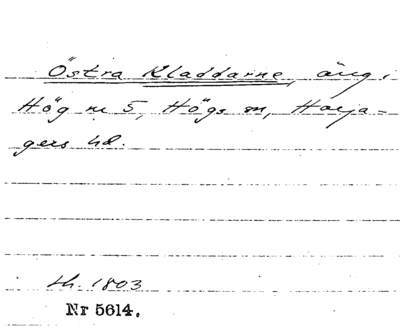 Östra Kladdarne, äng i
Hög nr 5, Högs sn, Harja-
gers hd.
Lh. 1803
Nr 5614.